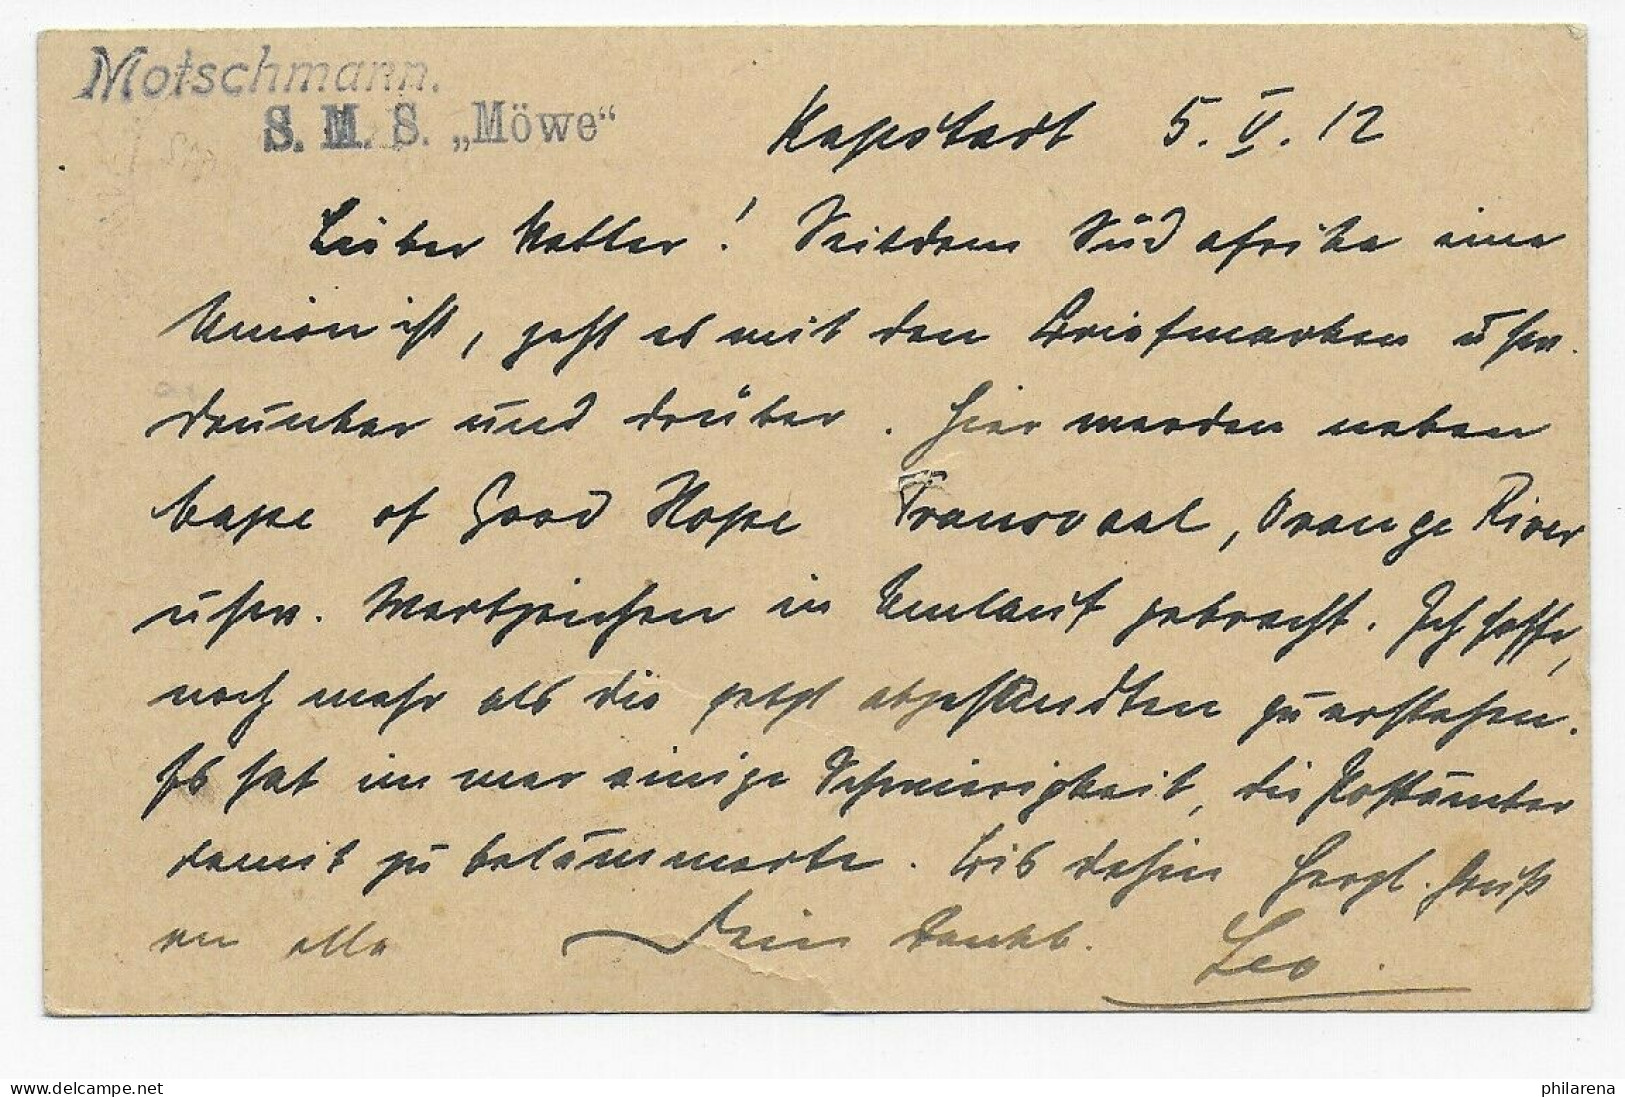 Motschmann.
S. M. S. „Möwe“
Kapstadt 5. V. 12
Lieber Vetter! Seitdem Südafrika eine
Union ist, geht es mit den Briefmarken usw.
drunter und drüber. Hier werden neben
Cape of Good Hope Transvaal, Orange River
usw. Wertzeichen in Umlauf gebracht. Ich hoffe,
noch mehr als die jetzt abgesandten zu erstehen.
Es hat immer einige Schwierigkeit, die Postämter
damit zu. Bis dahin herzl. Gruß
an alle Dein dankb. Leo.
philarena.com
philarena